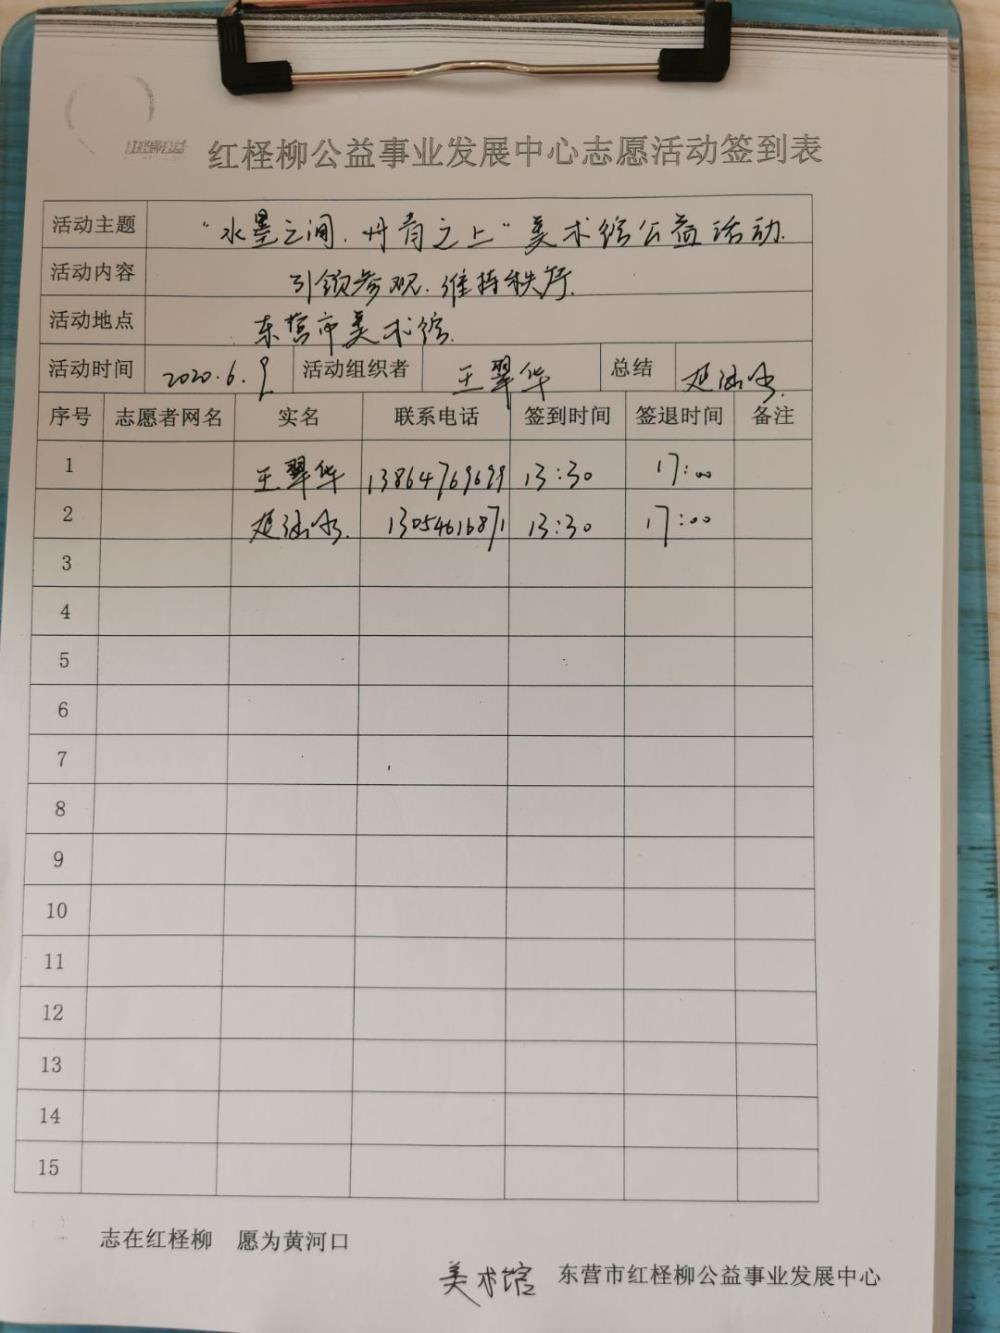 红柽柳公益
红柽柳公益事业发展中心志愿活动签到表
活动主题 “水墨之间.丹青之上”美术馆公益活动.
活动内容 引领参观.维持秩序.
活动地点 东营市美术馆.
活动时间 2020.6.9 活动组织者 王翠华 总结
序号 志愿者网名 实名 联系电话 签到时间 签退时间 备注
1 王翠华 13864769699 13:30 17:00
2 13054616871 13:30 17:00
3
4
5
6
7
8
9
10
11
12
13
14
15
志在红柽柳 愿为黄河口
美术馆 东营市红柽柳公益事业发展中心